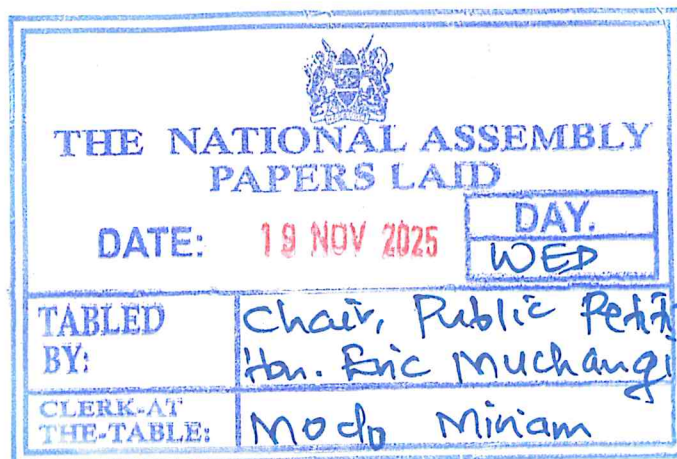 THE NATIONAL ASSEMBLY
PAPERS LAID
DATE: 19 NOV 2025
DAY.
WED
TABLED
BY:
Chair, Public Petiti
Hon. Eric Muchangi
CLERK-AT
THE-TABLE:
Modo Miriam